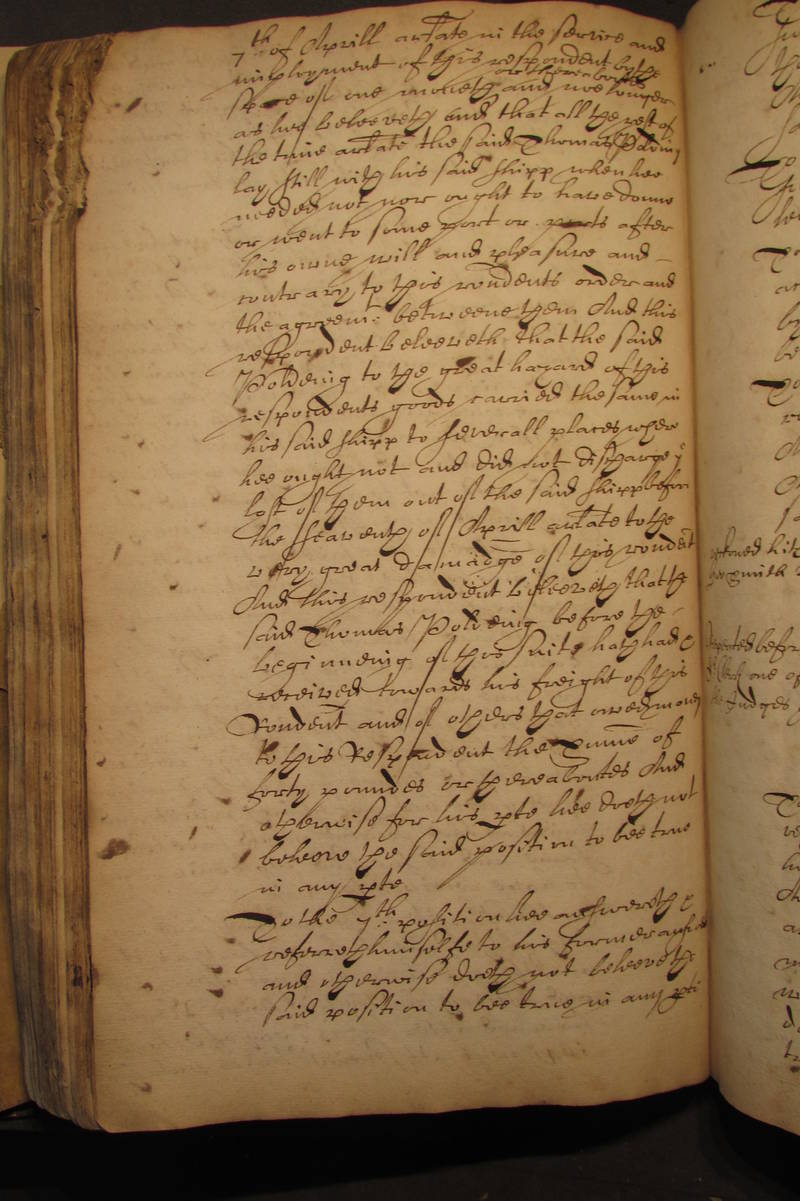 7th of Aprill artate in the service and
imployment of this respondent by the
or thereaboutes
space of one moneth and noe longer
as hee beleeveth and that all the rest of
the time artate the said Thomas Polding
lay still with his said shipp when hee
needed not nor ought to have donne
or went to some port or ports after
his owne will and pleasure and
contrary to this rondents order and
the agreemt: betweene them And this
respondent beleeveth that the said
Poldeing to the great hazard of this
respondents goods carried the same in
his said shipp to severall places where
hee ought not and did not discharge ye
last of them out of the said shipp before
the seaventh of Aprill artate to the
very great damadge of this rondent
And this respondent beleeveth that the
said Thomas Poldeing before the
beginneing of this suite hath had &
received towards his freight of this
Rondent and of others that owed money
to this Respondent the summe of
forty poundes or thereaboutes And
otherwise for his pte hee doth not
beleeve the said position to bee true
in any pte
To the 7th: position hee answereth &
referreth himselfe to his former
and otherwise doth not beleeve the
said position to bee true in any pte
before
one of
Judges